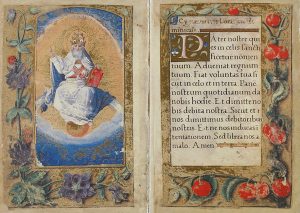 Pater noster qui
es in celis sancti
ficetur nomen
tuum. Adueniat regnum
tuum. Fiat voluntas tua si
cut in celo et in terra. Pane
nostrum quotidianum da
nobis hodie. Et dimitte no
bis debita nostra. Sicut et
nos dimittimus debitoribus
nostris. Et ne nos inducas i
tentationem. Sed libera nos a
malo. Amen